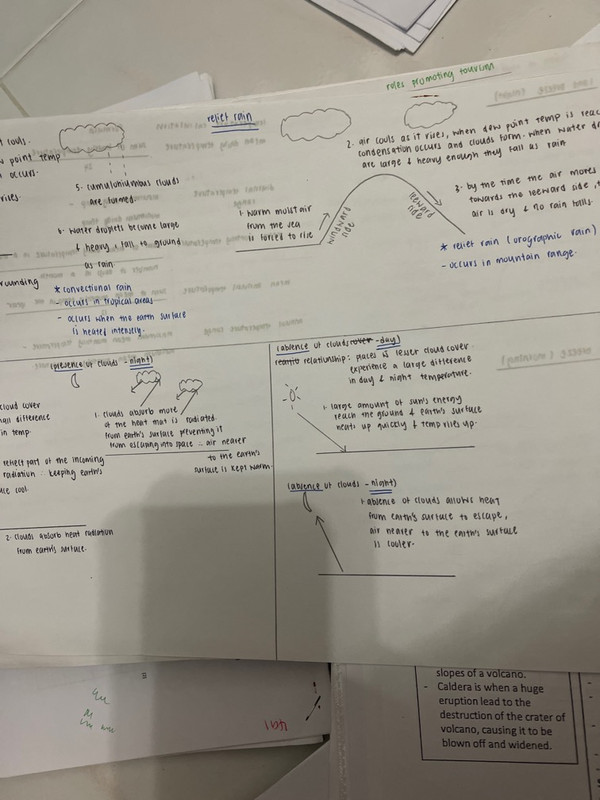 roles promoting tourism
relief rain
t cools.
w point temp
occurs.
rises.
5. cumulonimbus clouds
are formed.
6. water droplets become large
& heavy & fall to ground
as rain.
rounding
* convectional rain
- occurs in tropical areas
- occurs when the earth surface
is heated intensely.
1. warm moist air
from the sea
is forced to rise
windward
side
leeward
side
2. air cools as it rises, when dew point temp is reac
condensation occurs and clouds form. when water dr
are large & heavy enough they fall as rain
3. by the time the air moves
towards the leeward side,
air is dry & no rain falls.
* relief rain (orographic rain)
- occurs in mountain range.
(presence of clouds - night)
cloud cover
all difference
in temp.
reflect part of the incoming
radiation : keeping earth's
cool.
1. clouds absorb more
of the heat that is radiated
from earth's surface preventing it
from escaping into space ∴ air nearer
to the earth's
surface is kept warm.
2. clouds absorb heat radiation
from earth's surface.
(absence of clouds cover - day)
relationship: places w lesser cloud cover
experience a large difference
in day & night temperature.
1. large amount of sun's energy
reach the ground & earth's surface
heats up quickly & temp rises up.
(absence of clouds - night)
1. absence of clouds allows heat
from earth's surface to escape,
air nearer to the earth's surface
is cooler.
slopes of a volcano.
- Caldera is when a huge
eruption lead to the
destruction of the crater of
volcano, causing it to be
blown off and widened.